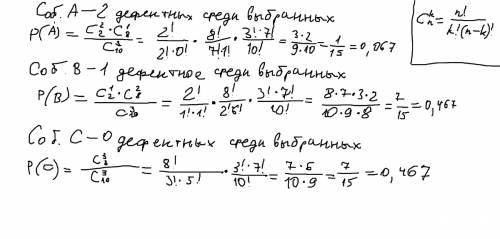 Соб. А – 2 дефектных среди выбранных
P(A) = C₂² · C₈¹ / C₁₀³ = 2! / 2! · 0! · 8! / 7! 1! · 3! · 7! / 10! = 3 · 2 / 9 · 10 = 1 / 15 = 0,067
C_n^k = n! / k! (n-k)!
Соб. В – 1 дефектное среди выбранных
P(B) = C₂¹ · C₈² / C₁₀³ = 2! / 1! · 1! · 8! / 2! 6! · 3! · 7! / 10! = 8 · 7 · 3 · 2 / 10 · 9 · 8 = 7 / 15 = 0,467
Соб. С – 0 дефектных среди выбранных
P(C) = C₈³ / C₁₀³ = 8! / 3! · 5! · 3! · 7! / 10! = 7 · 6 / 10 · 9 = 7 / 15 = 0,467